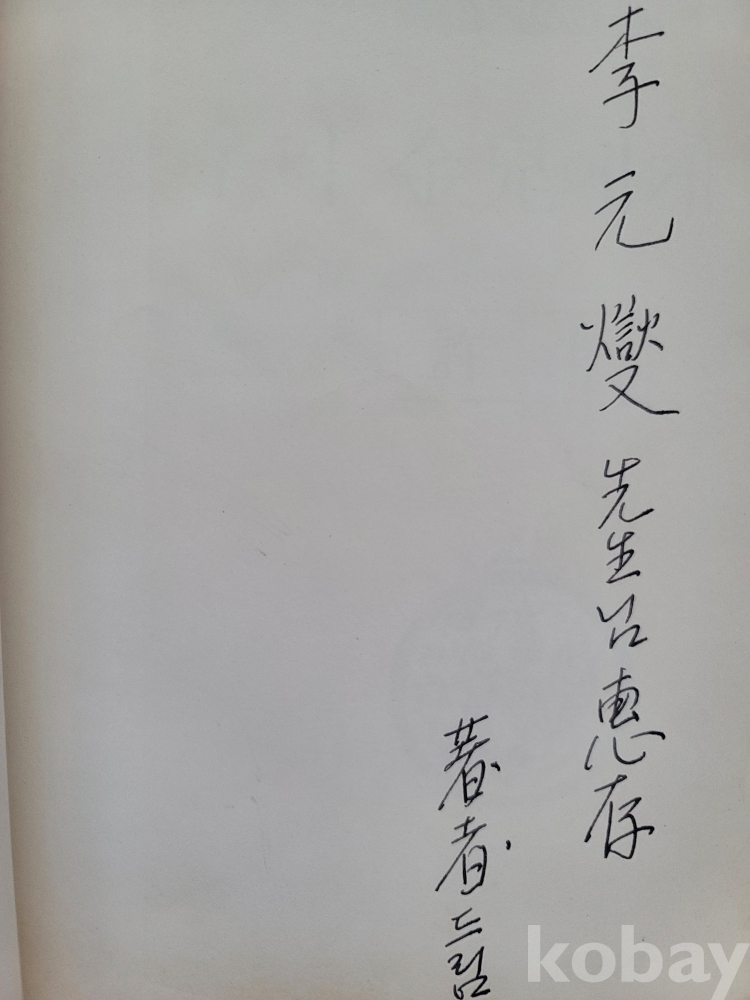 李元燮 先生台 惠存
著者 드림
kobay